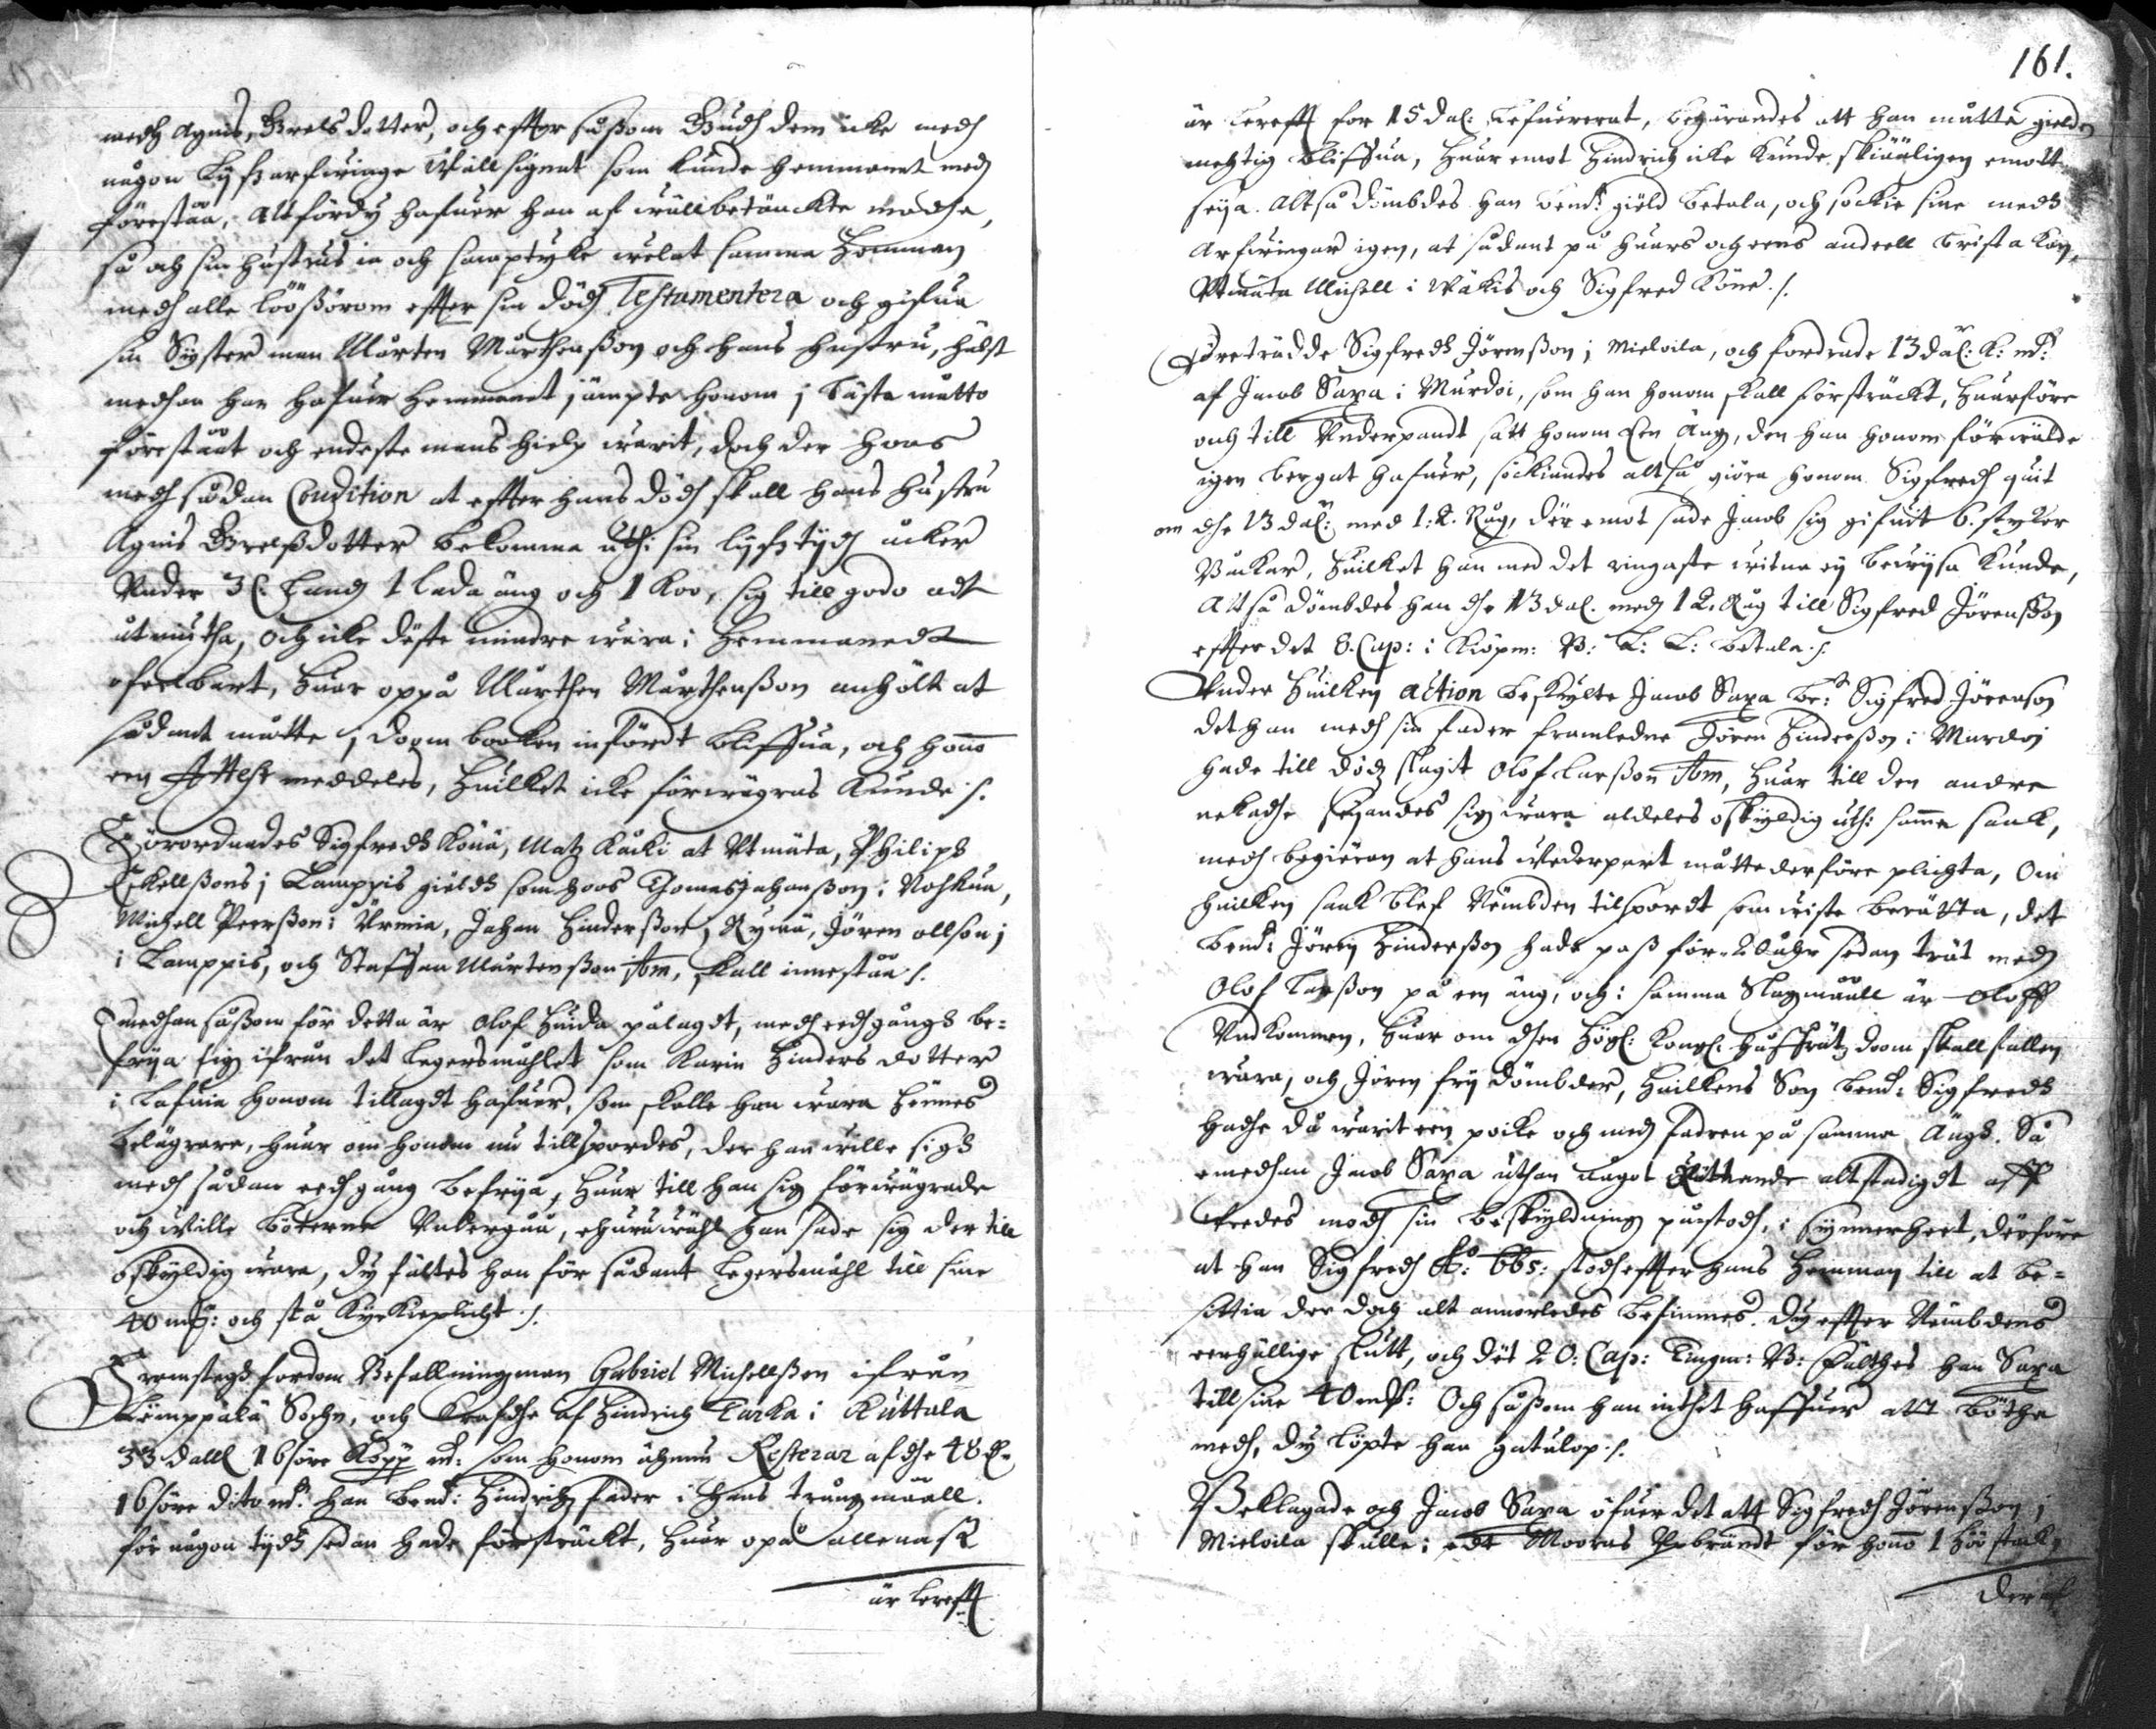 medh Agnis, Brels dotter, och effter såßom Gudh dem icke medh
någon Lijfzarfwinge wälsignat som kunde hemmanet medh
förestaa, Altfördÿ hafuer han af wällbetänckte modhe,
så och sin hustrus ia och samptyke welat samma Hemman
medh alle löößörom effter sin dödh Testamentera och gifua
sin Syster man Mårten Mårthenßon och hans hustru, hälst
medhan han hafuer hemmanet jämpte honom j bästa måtto
förestaat och endeste mans hielp warit, doch der hoos
medh sådan Condition at effter hans dödh skall hans hustru
Agnis Brelßdotter bekomma uthi sin lijfztijdh åcker
Under 3 C: Landh 1 lada äng och 1 Koo, sig till godo adt
utniutha, och icke däste mindre wara i Hemmanedt
ofeelbart, Huar oppå Mårthen Mårthenßon anhölt at
sådant måtte j doom booken infördt bliffua, och honom
een Attest meddeles, Huilket icke förwägras kunde ./.
Förordnades Sigfredh Könä, Matz Kacki at Utmäta, Philips
Eskellßons j Lamppis gieldh som hoos Thomas Johanßon i Nohkua,
Michell Peerßon i Urmia, Johan Hinderßon j Rymä, Jören ollson j
i Lamppis, och Staffan Mårtenßon ibm, skall innestaa ./.
Emedhan såßom för detta är Olof Huida pålagdt, medh eedhgångh be=
frija sig ifrån det legersmählet som Karin Hinders dotter
i Lafuia honom tillagdt hafuer, som skulle han wara Hennes
belägrare, huar om honom nu tillspordes, der han wille sigh
medh sådan eedhgång befrija, Huar till han sig förwägrade
och wille böterne Undergåå, ehuruwähl han sade sig der till
oskÿldig wara, dÿ fältes han för sådant legersmåhl till sine
40 mk: och stå Kyrkieplicht ./.
Framstegh fordom Befallningzman Gabriel Michellßon ifrån
Lemppälä Sochn, och krafdhe af Hindrich Turka i Kuttala
33 dall 16 öre Kopp mt: som honom ähnnu Resterar af dhe 48 d.
16 öre dito mt: han bemt: Hindrich fader i hans trångmååll
för någon tijdh sedan hade försträckt, Huar opå allenast
är lerefft
161.
är lerefft for 15 dal: Lefuererat, begärandes att han måtte gielden
mechtig bliffua, Huar emot Hindrich icke kunde skiääligen emott
seija. Altså dömbdes han bemt: gield betala, och sökie sine medh
Arfwingar igen, at sådant på huars och eens andeell brista kan,
Utmäta Michell i Wäkis och Sigfred Köne ./.
Företrädde Sigfredh Jörenßon j Mieloila, och fordrade 13 dal: K: mt:
af Jacob Saxa i Murdoi, som han honom skall försträckt, Huarföre
och till Underpandt satt honom Een Äng, den han honom förwälde
igen bergat hafuer, sökiandes altså giöra honom Sigfredh quit
om dhe 13 dal: med 1: K. Rug, der emot sade Jacob sig gifuit 6. stÿker
Wackar, Huilket han med det ringaste witne eÿ bewijsa kunde,
Altså dömbdes han dhe 13 dal. medh 1 K. Rug till Sigfred Jörenßon
effter det 8. Cap: i Kiöpm: B: L: L: betala ./.
Under Huilken action beskylte Jacob Saxa be:te Sigfred Jörenson
det han medh sin fader framledne Jören Hinderßon i Murdoj
hade till dödz slagit Olof Larßon ibm, Huar till den andre
nekadhe seijandes sig wara aldeles oskÿldig uthi samma saak,
medh begiäran at hans wederpart måtte derföre plichta, Om
huilken saak blef Nembden tilspordt som wiste berätta, det
bemt: Jören Hinderßon hade paß för 20 åhr sedan trät medh
Olof Larßon på een äng, och i samma Slagmååll är Oloff
Umkommen, Huar om dhen Högl: Kongl: Hoffrätz doom skall fallen
wara, och Jören frij dömbder, Huilkens Son bemt: Sigfredh
hadhe då warit een poike och medh fadren på samma Ängh. Så
emedhan Jacob Saxa uthan något Rättande altstadigdt aff
wredes modh sin beskÿldning påstodh, i synnerheet, därföre
at han Sigfredh Ao: 665: stodh effter hans Hemman till at be=
sittia der doch alt annorledes befinnes. Dÿ effter Nembdens
eenhällige slutt, och det 20: Cap: Tingm: B: Fälthes han Saxa
till sine 40 mk: Och såßom han inthet haffuer att böthe
medh, dÿ löpte han gatulop ./.
Beklagade och Jacob Saxa öfuer det att Sigfredh Jörenßon j
Mieloila skulle i edt Mooras Upbrändt för honom 1 höö stack,
der af